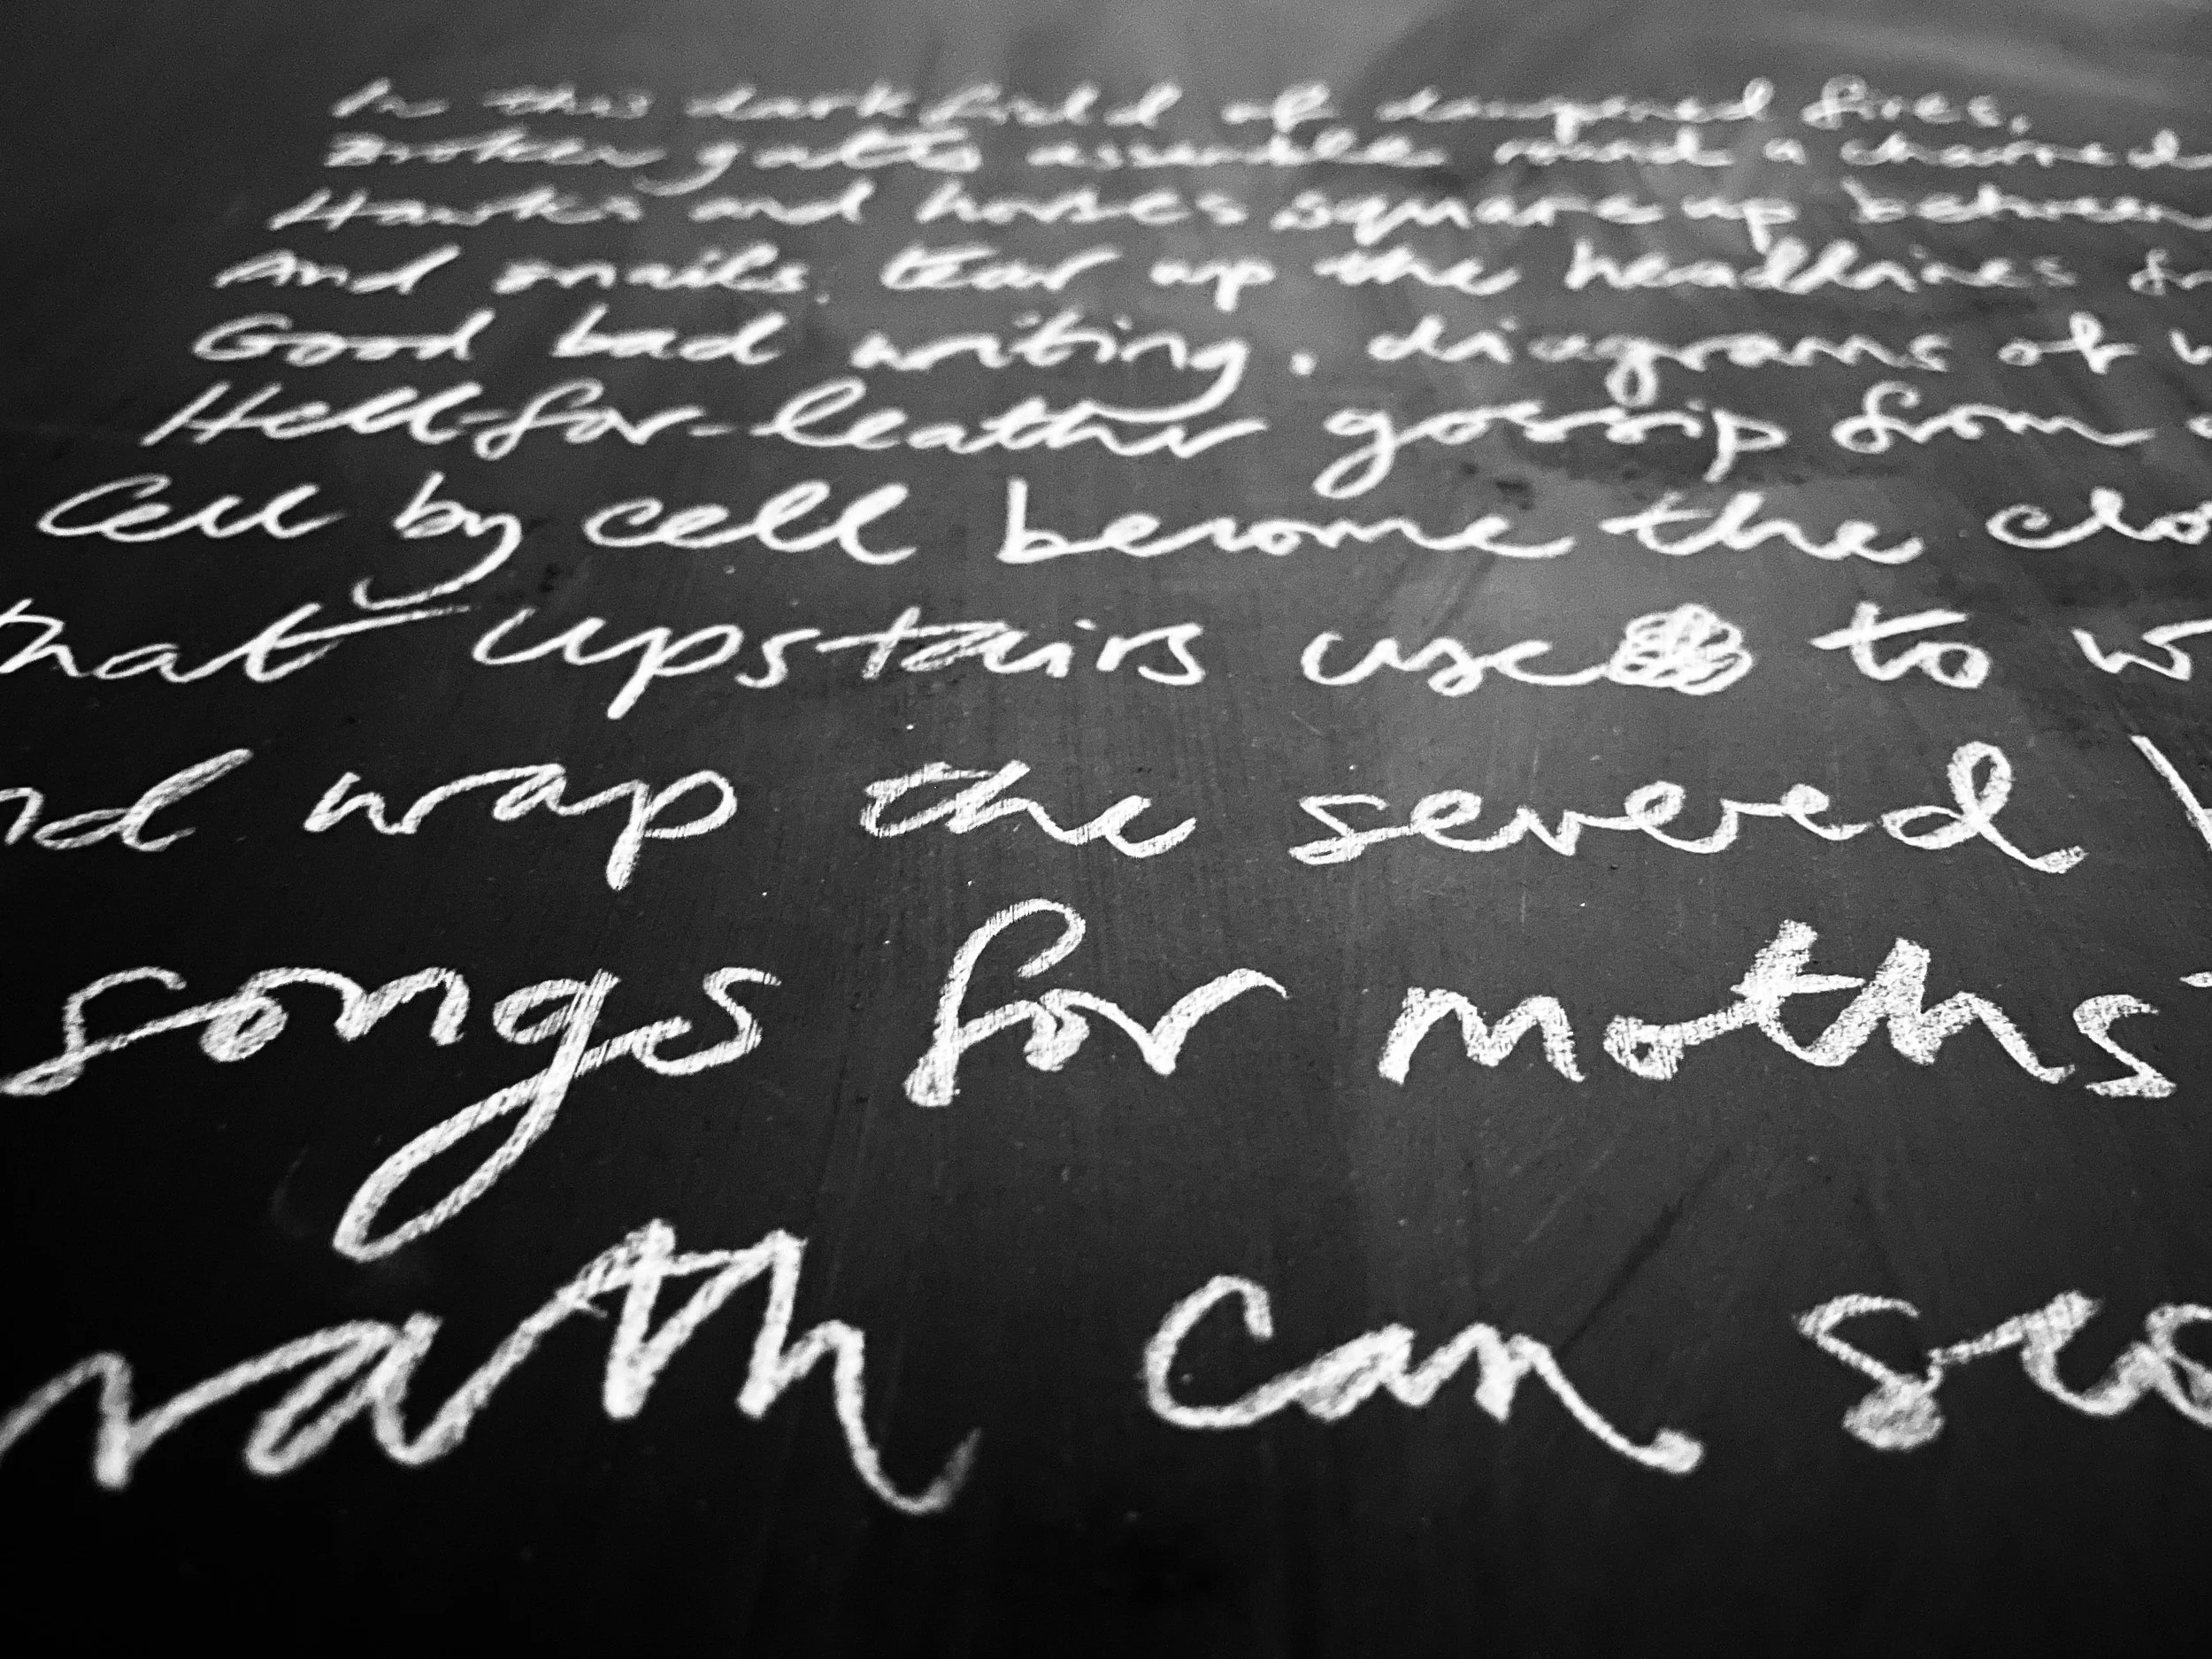 In this dark field of dampened fires,
Broken gatts assemble round a charred
Hawks and horses square up between
And snails. tear up the headlines
Good bad writing. diagrams of
Hell-for-leather gossip from
Cell by cell become the clo
that upstairs use to w
nd wrap the severed
songs for moths
rath can